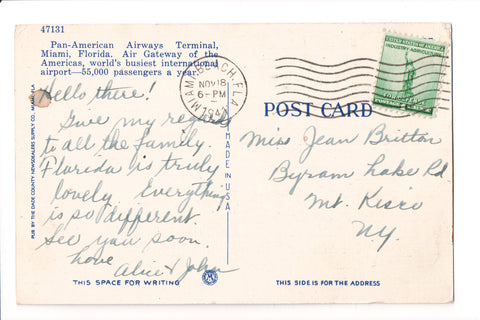 47131
Pan-American Airways Terminal,
Miami, Florida. Air Gateway of the
Americas, world's busiest international
airport—55,000 passengers a year.
Hello there!
Give my regards
to all the family.
Florida is truly
lovely Everything
is so different
see you soon.
Love
Alice & John
THIS SPACE FOR WRITING
PUB BY THE DADE COUNTY NEWSDEALERS SUPPLY CO. MIAMI, FLA.
MADE IN U.S.A.
MIAMI BEACH, FLA.
NOV 18
6-PM
UNITED STATES OF AMERICA
INDUSTRY AGRICULTURE
FOR DEFENSE
POST CARD
Miss Jean Britton
Byram Lake Rd
Mt. Kisco
NY.
THIS SIDE IS FOR THE ADDRESS